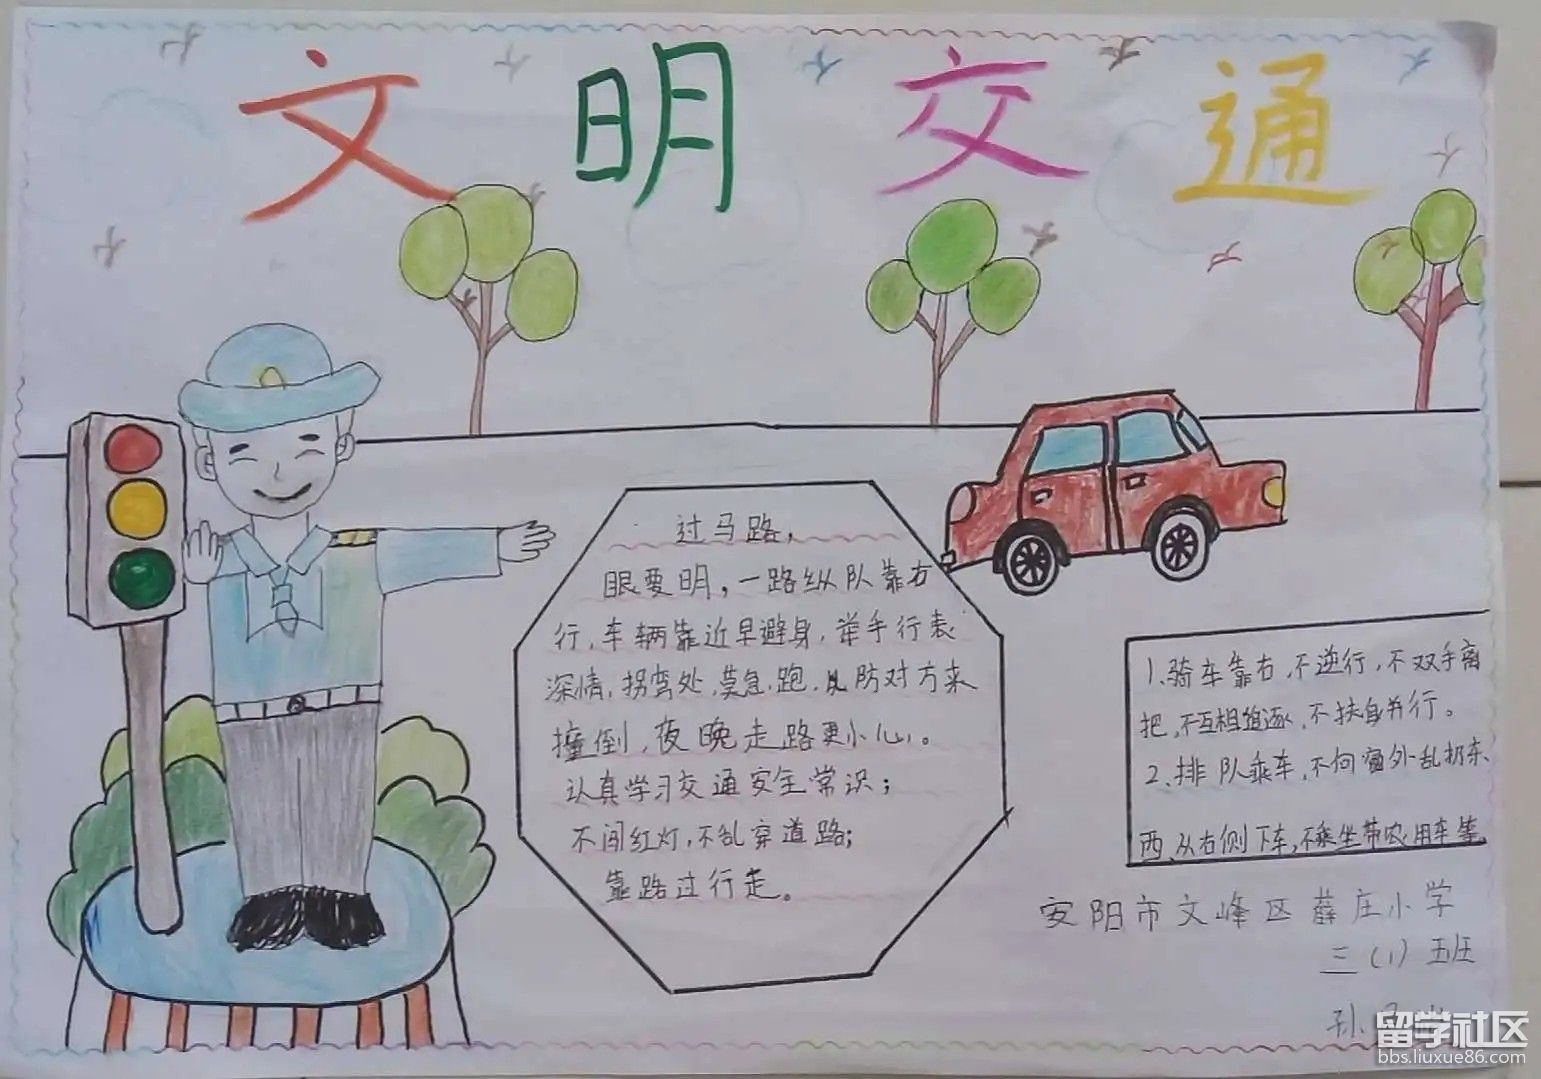 文明交通
过马路,
眼要明,一路纵队靠右
行,车辆靠近早避身,举手行表
深情,拐弯处,莫急跑,以防对方来
撞倒,夜晚走路更小心。
认真学习交通安全常识;
不闯红灯,不乱穿道路;
靠路过行走。
1、骑车靠右,不逆行,不双手离
把,不互相追逐,不扶身并行。
2、排队乘车,不向窗外乱扔东
西,从右侧下车,不乘坐带农用车等
安阳市文峰区薛庄小学
三(1)班
孙
留学社区
bbs.liuxue86.com